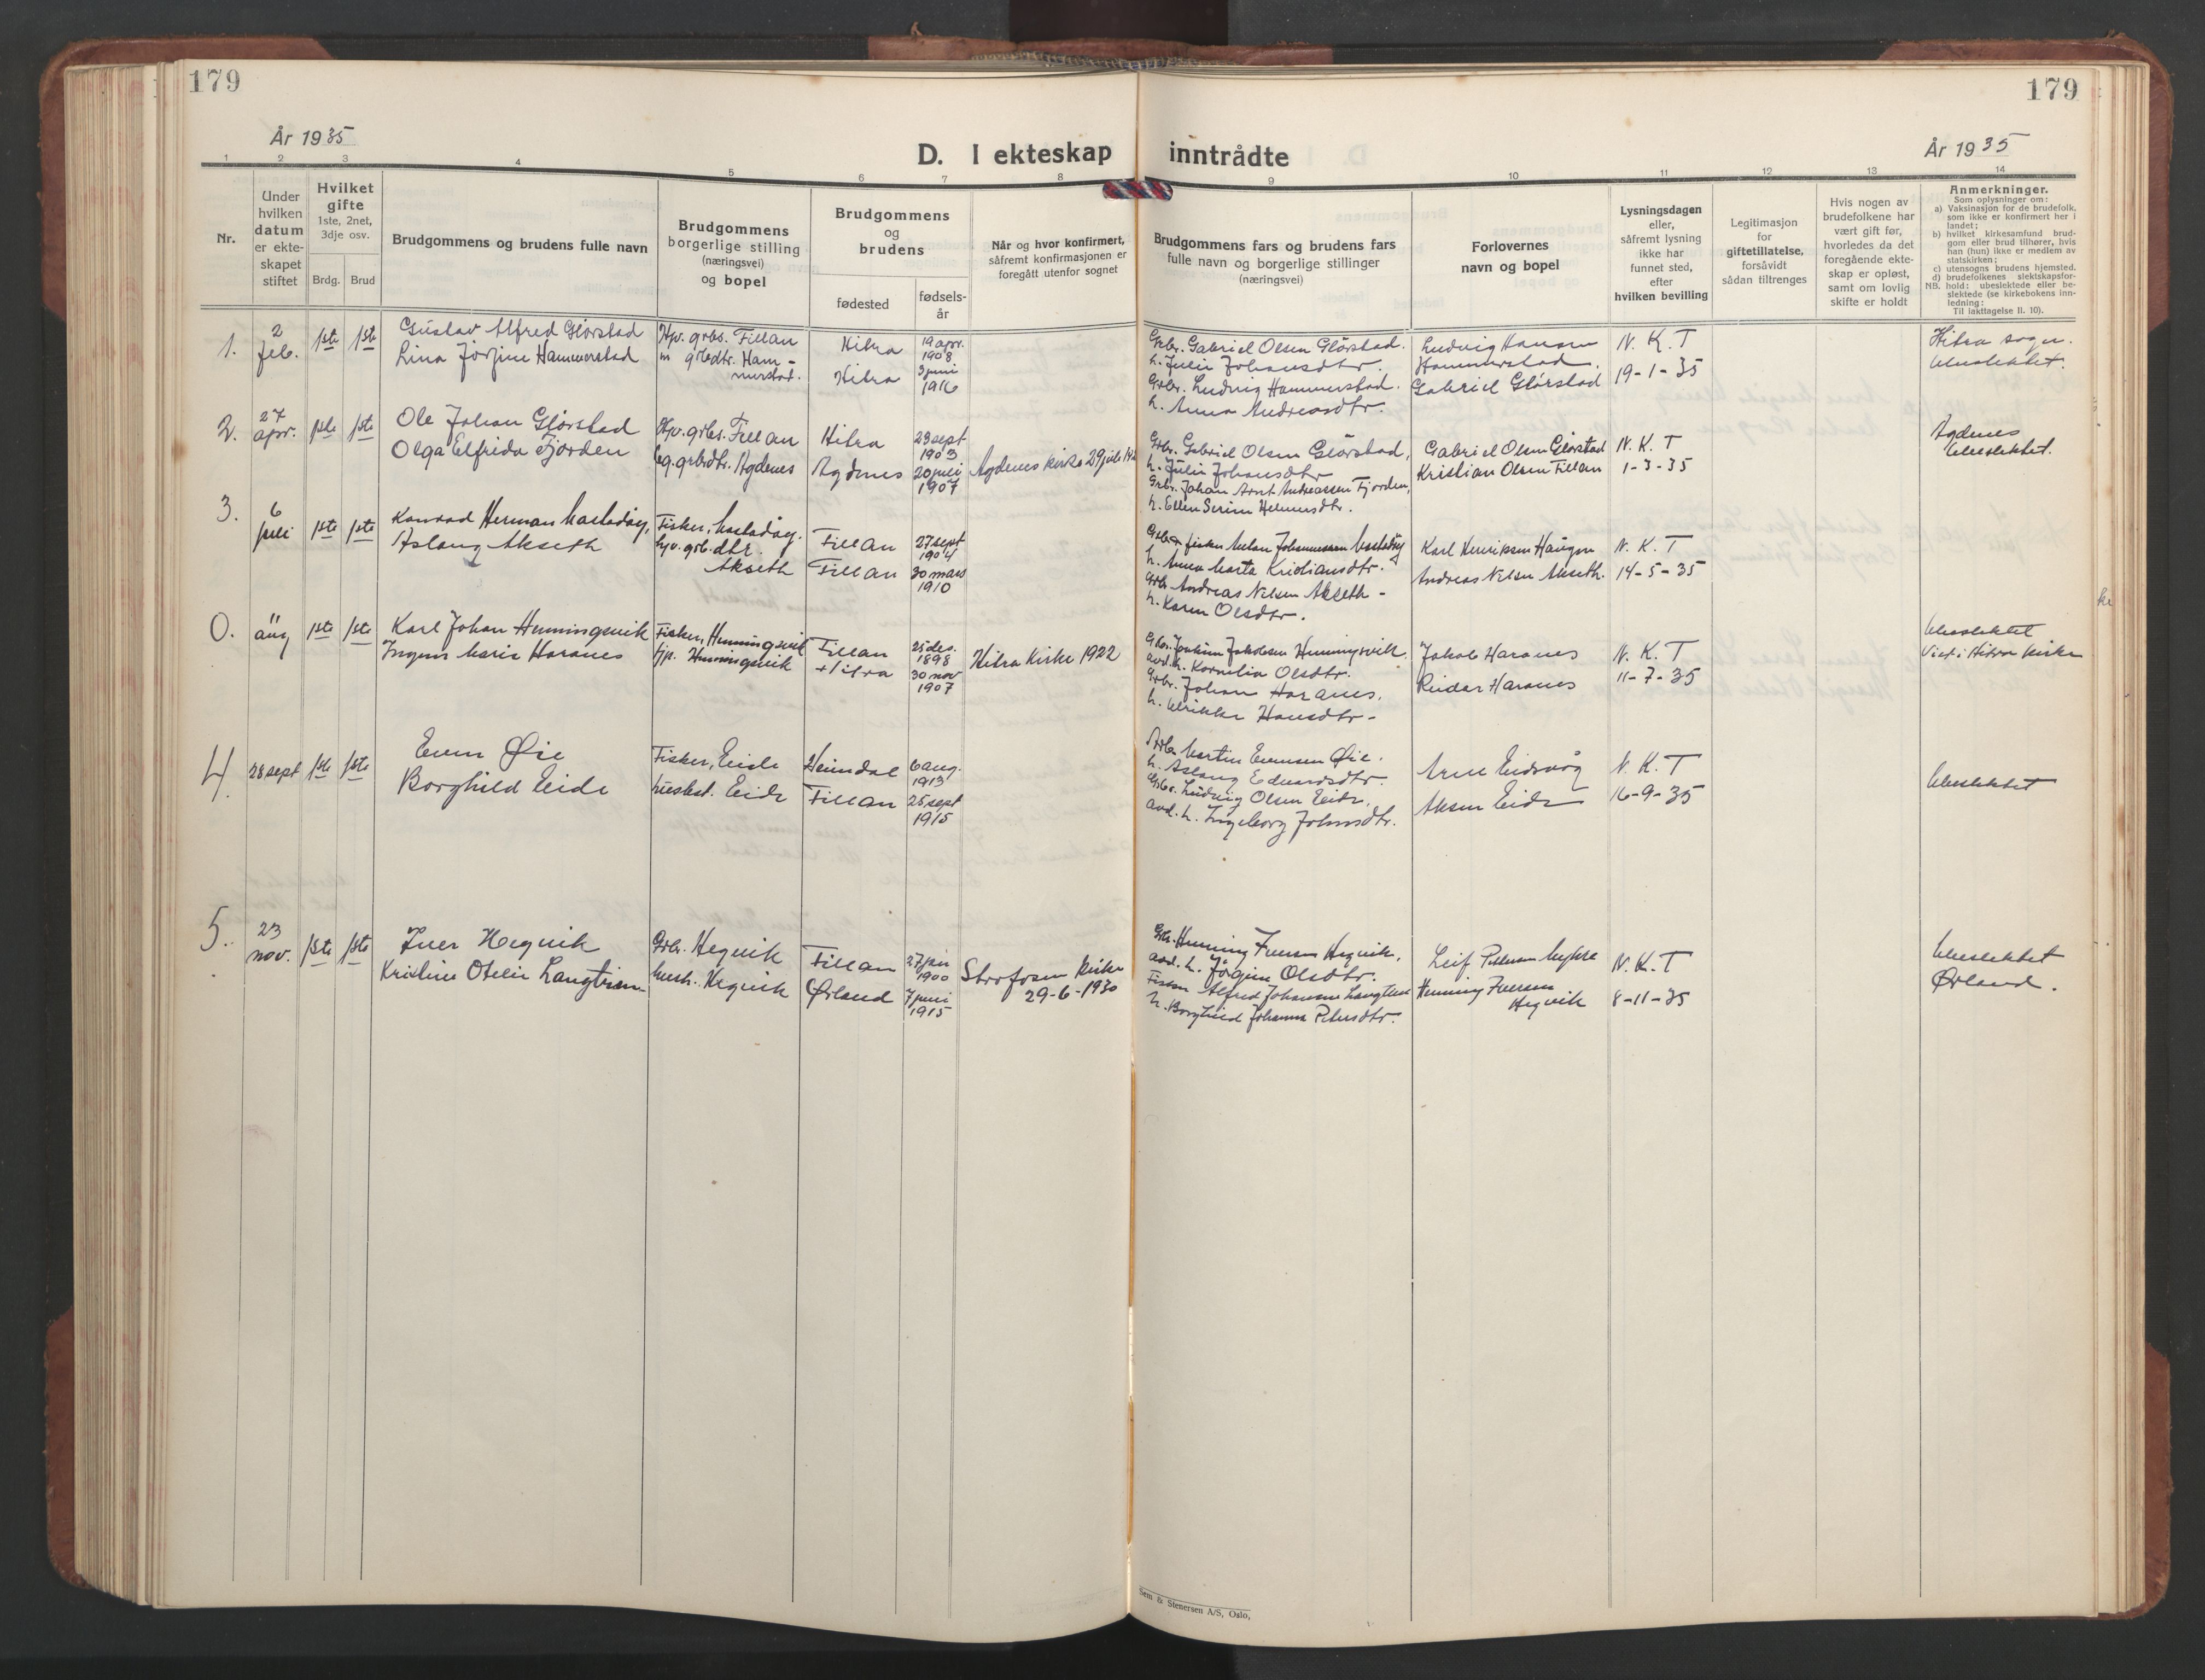 179
179
År 1935
D. I ekteskap inntrådte
År 1935
1 2 3 4 5 6 7 8 9 10 11 12 13 14
Nr.
Under
hvilken
datum
er ekte-
skapet
stiftet
Hvilket
gifte
1ste, 2net,
3dje osv.
Brdg. Brud
Brudgommens og brudens fulle navn
Brudgommens
borgerlige stilling
(næringsvei)
og bopel
Brudgommens
og
brudens
fødested
fødsels-
år
Når og hvor konfirmert,
såfremt konfirmasjonen er
foregått utenfor sognet
Brudgommens fars og brudens fars
fulle navn og borgerlige stillinger
(næringsvei)
Forlovernes
navn og bopel
Lysningsdagen
eller,
såfremt lysning
ikke har
funnet sted,
efter
hvilken bevilling
Legitimasjon
for
giftetillatelse,
forsåvidt
sådan tiltrenges
Hvis nogen av
brudefolkene har
vært gift før,
hvorledes da det
foregående ekte-
skap er opløst,
samt om lovlig
skifte er holdt
Anmerkninger.
Som oplysninger om:
a) Vaksinasjon for de brudefolk,
som ikke er konfirmert her i
landet;
b) hvilket kirkesamfund brud-
gom eller brud tilhører, hvis
han (hun) ikke er medlem av
statskirken;
c) utensogns brudens hjemsted.
d) brudefolkenes slektskapsfor-
NB. hold: ubeslektede eller be-
slektede (se kirkebokens inn-
ledning:
Til iakttagelse II. 10).
1.
2
feb.
1ste 1ste
Gustav Alfred Glørstad
Lina Jørgine Hammerstad
Hjv. grbs. Fillan
grbdtr. Ham-
merstad.
Hitra
Hitra
19 apr.
1908
3 juni
1916
Grbr. Gabriel Olsen Glørstad.
h. Julie Johansdtr.
Grbr. Ludvig Hammerstad.
h. Anna Andreasdtr.
Ludvig Hansen
Hammerstad.
Gabriel Glørstad
N. K. T
19-1-35
Hitra sogn.
Ubeslektet.
2.
27
apr.
1ste 1ste
Ole Johan Glørstad
Olga Elfrida Fjorden
Hjv. grbs. Fillan
grbrdtr. Agdenes
Hitra
Agdenes
23 sept
1903
20 juli
1907
Agdenes kirke 29 juli
Grbr. Gabriel Olsen Glørstad,
h. Julie Johansdtr
Grbr. Johan Arnt Andreassen Fjorden,
h. Ellen Serine Helmersdtr.
Gabriel Olsen Glørstad
Kristian Olsen Fillan
N. K. T
1-3-35
Agdenes
Ubeslektet.
3.
6
juli
1ste 1ste
Konrad Herman Mastadøy,
Aslaug Akseth
Fisker, Mastadøy.
hjv. grb.dtr.
Akseth
Fillan
Fillan
27 sept
1904
30 mars
1910
h. Anna Marta Kristiansdtr.
Grb. Andreas Nilsen Akseth -
h. Karen Olsdtr.
Karl Henriksen Haugen
Andreas Nilsen Akseth.
N. K. T
14-5-35
0.
11
aug
1ste 1ste
Karl Johan Henningsvik
Ingem Marie Haranes
Fisker, Henningsvik
tjp. Henningsvik
Fillan
Hitra
25 des.
1898
30 nov
1907
Hitra Kirke 1922
Grbr. Joakim Jakobsen Henningsvik.
avd. h. Kornelia Olsdtr.
Grbr. Johan Haranes.
h. Ulrikke Hansdtr -
Jakob Haranes
Reidar Haranes
N. K. T
11-7-35
Ubeslektet
Viet i Hitra kirke
4.
28 sept
1ste 1ste
Even Øie
Borghild Eide
Fisker, Eide
husbest. Eide
Heimdal
Fillan
6 aug.
1913
25 sept
1915
Arb. Martin Evensen Øie.
h. Aslaug Edvardsdtr.
Grbr. Ludvig Olsen Eide,
avd. h. Ingeborg Johnsdtr.
Arne Eidsvåg
Aksen Eide
N. K. T
16-9-35
Ubeslektet
5.
23
nov.
1ste 1ste
Iver Hegvik
Kristine Otelie Langtrien
Grbr. Hegvik
hush. Hegvik
Fillan
Ørland
27 jan
1900
7 juni
1915
Storfosen kirke
29-6-1930
Grb. Henning Iversen Hegvik.
avd. h. Jørgine Olsdtr.
Alfred Johansen
h. Borghild Johanna Petersdtr.
Leif Pettersen Myhre
Henning Iversen
Hegvik
N. K. T
8-11-35
Ubeslektet
Ørland.
Sem & Stenersen A/S, Oslo,